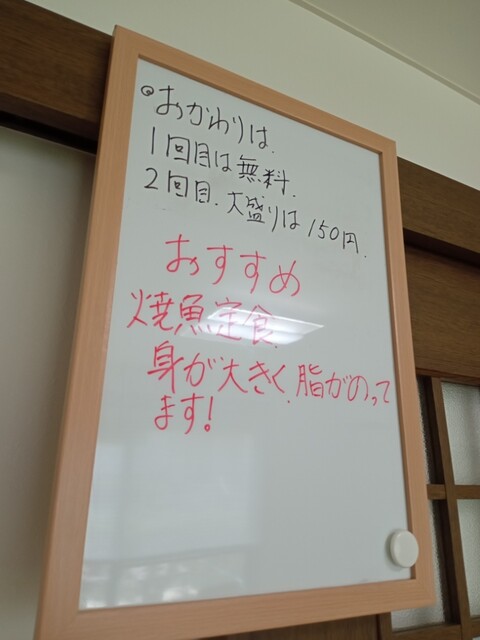 ◎おかわりは、
1回目は無料、
2回目、大盛りは150円、
おすすめ
焼魚定食、
身が大きく、脂がのって
ます!